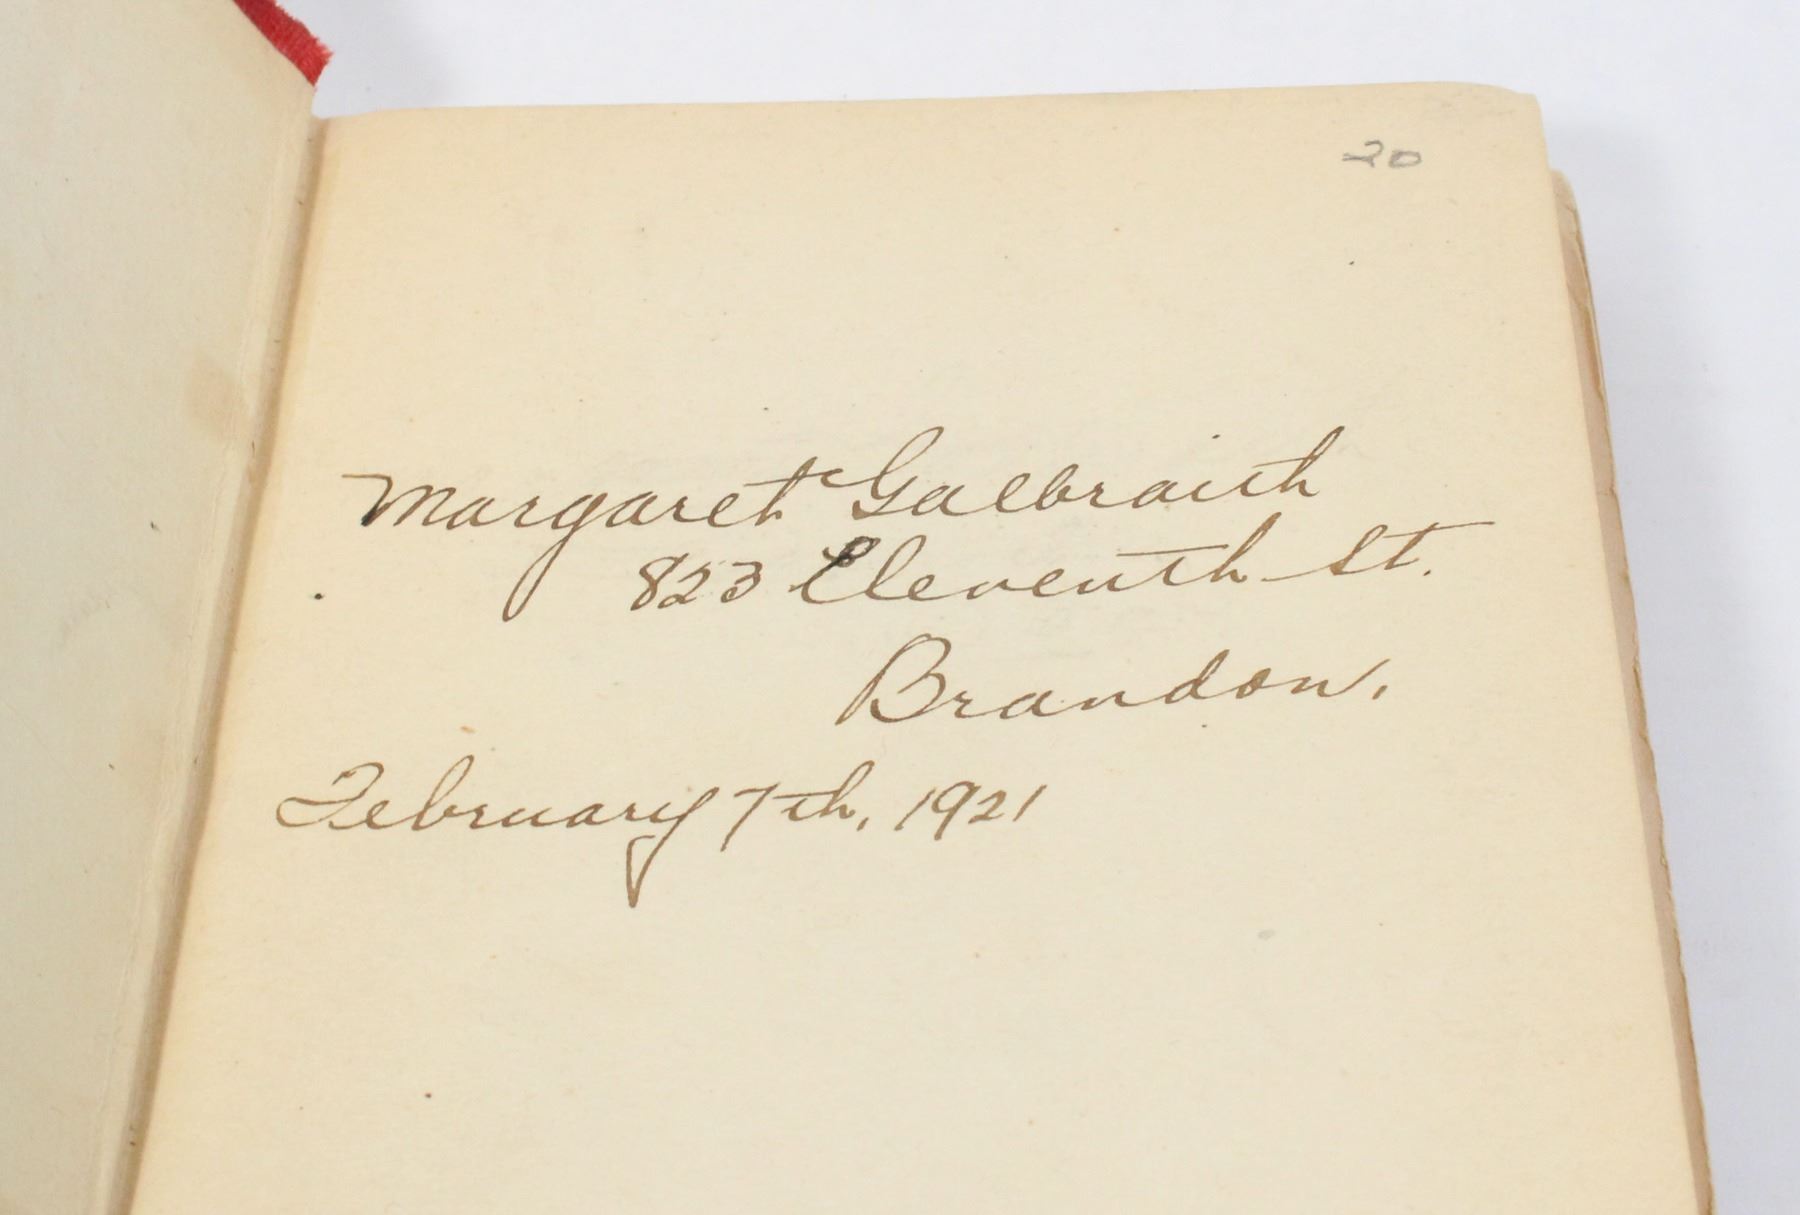 20
Margaret Galbraith
823 Eleventh St.
Brandon.
February 7th, 1921